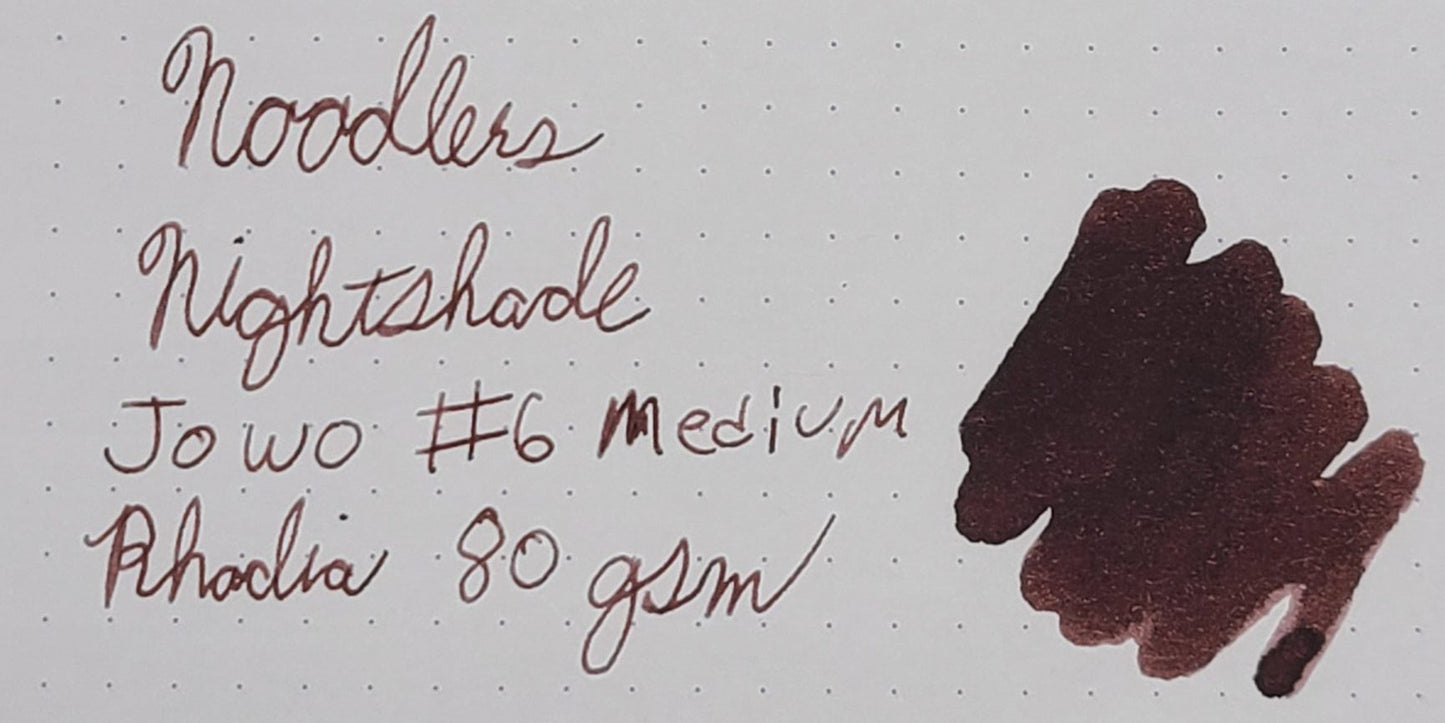 Noodlers
Nightshade
Jowo #6 Medium
Rhodia 80 gsm